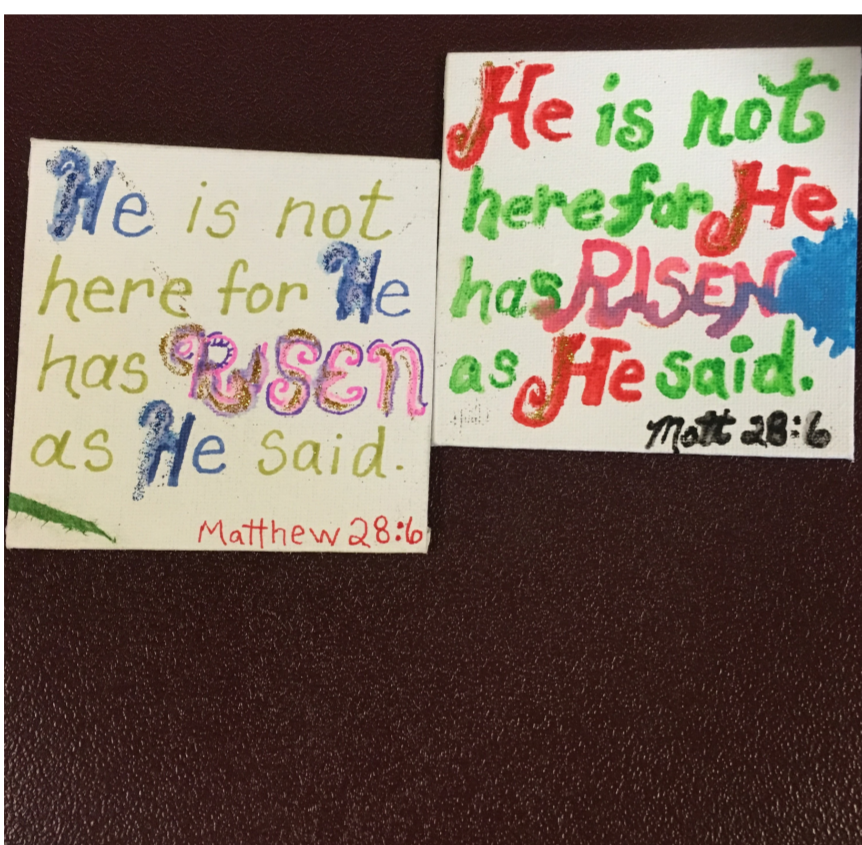 He is not
here for He
has RISEN
as He said.
Matthew 28:6
He is not
here for He
has RISEN
as He said.
Matt 28:6